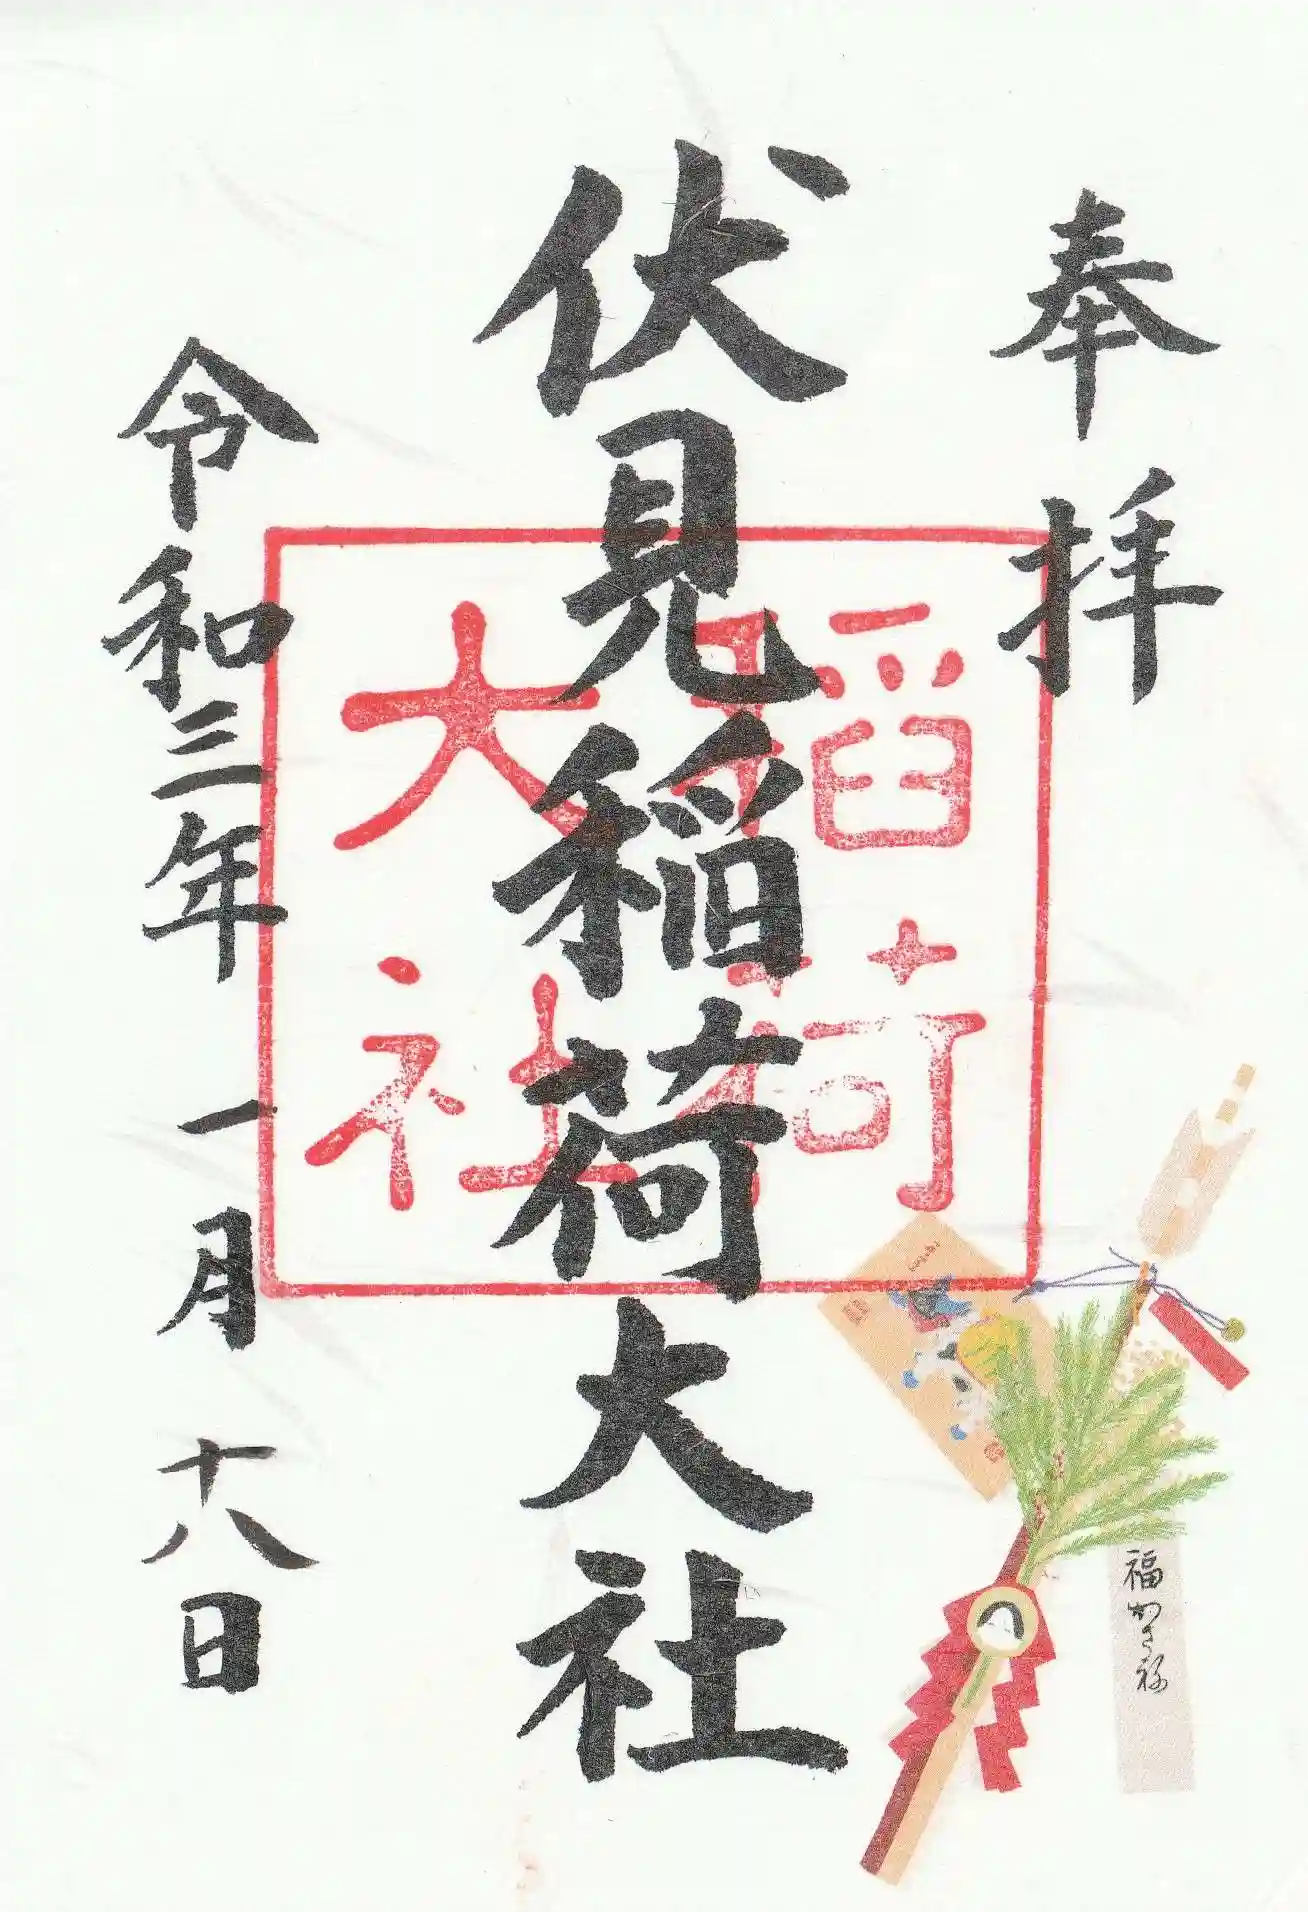 奉拝
伏見稲荷大社
稲荷
大社
令和三年一月十八日
福かさね